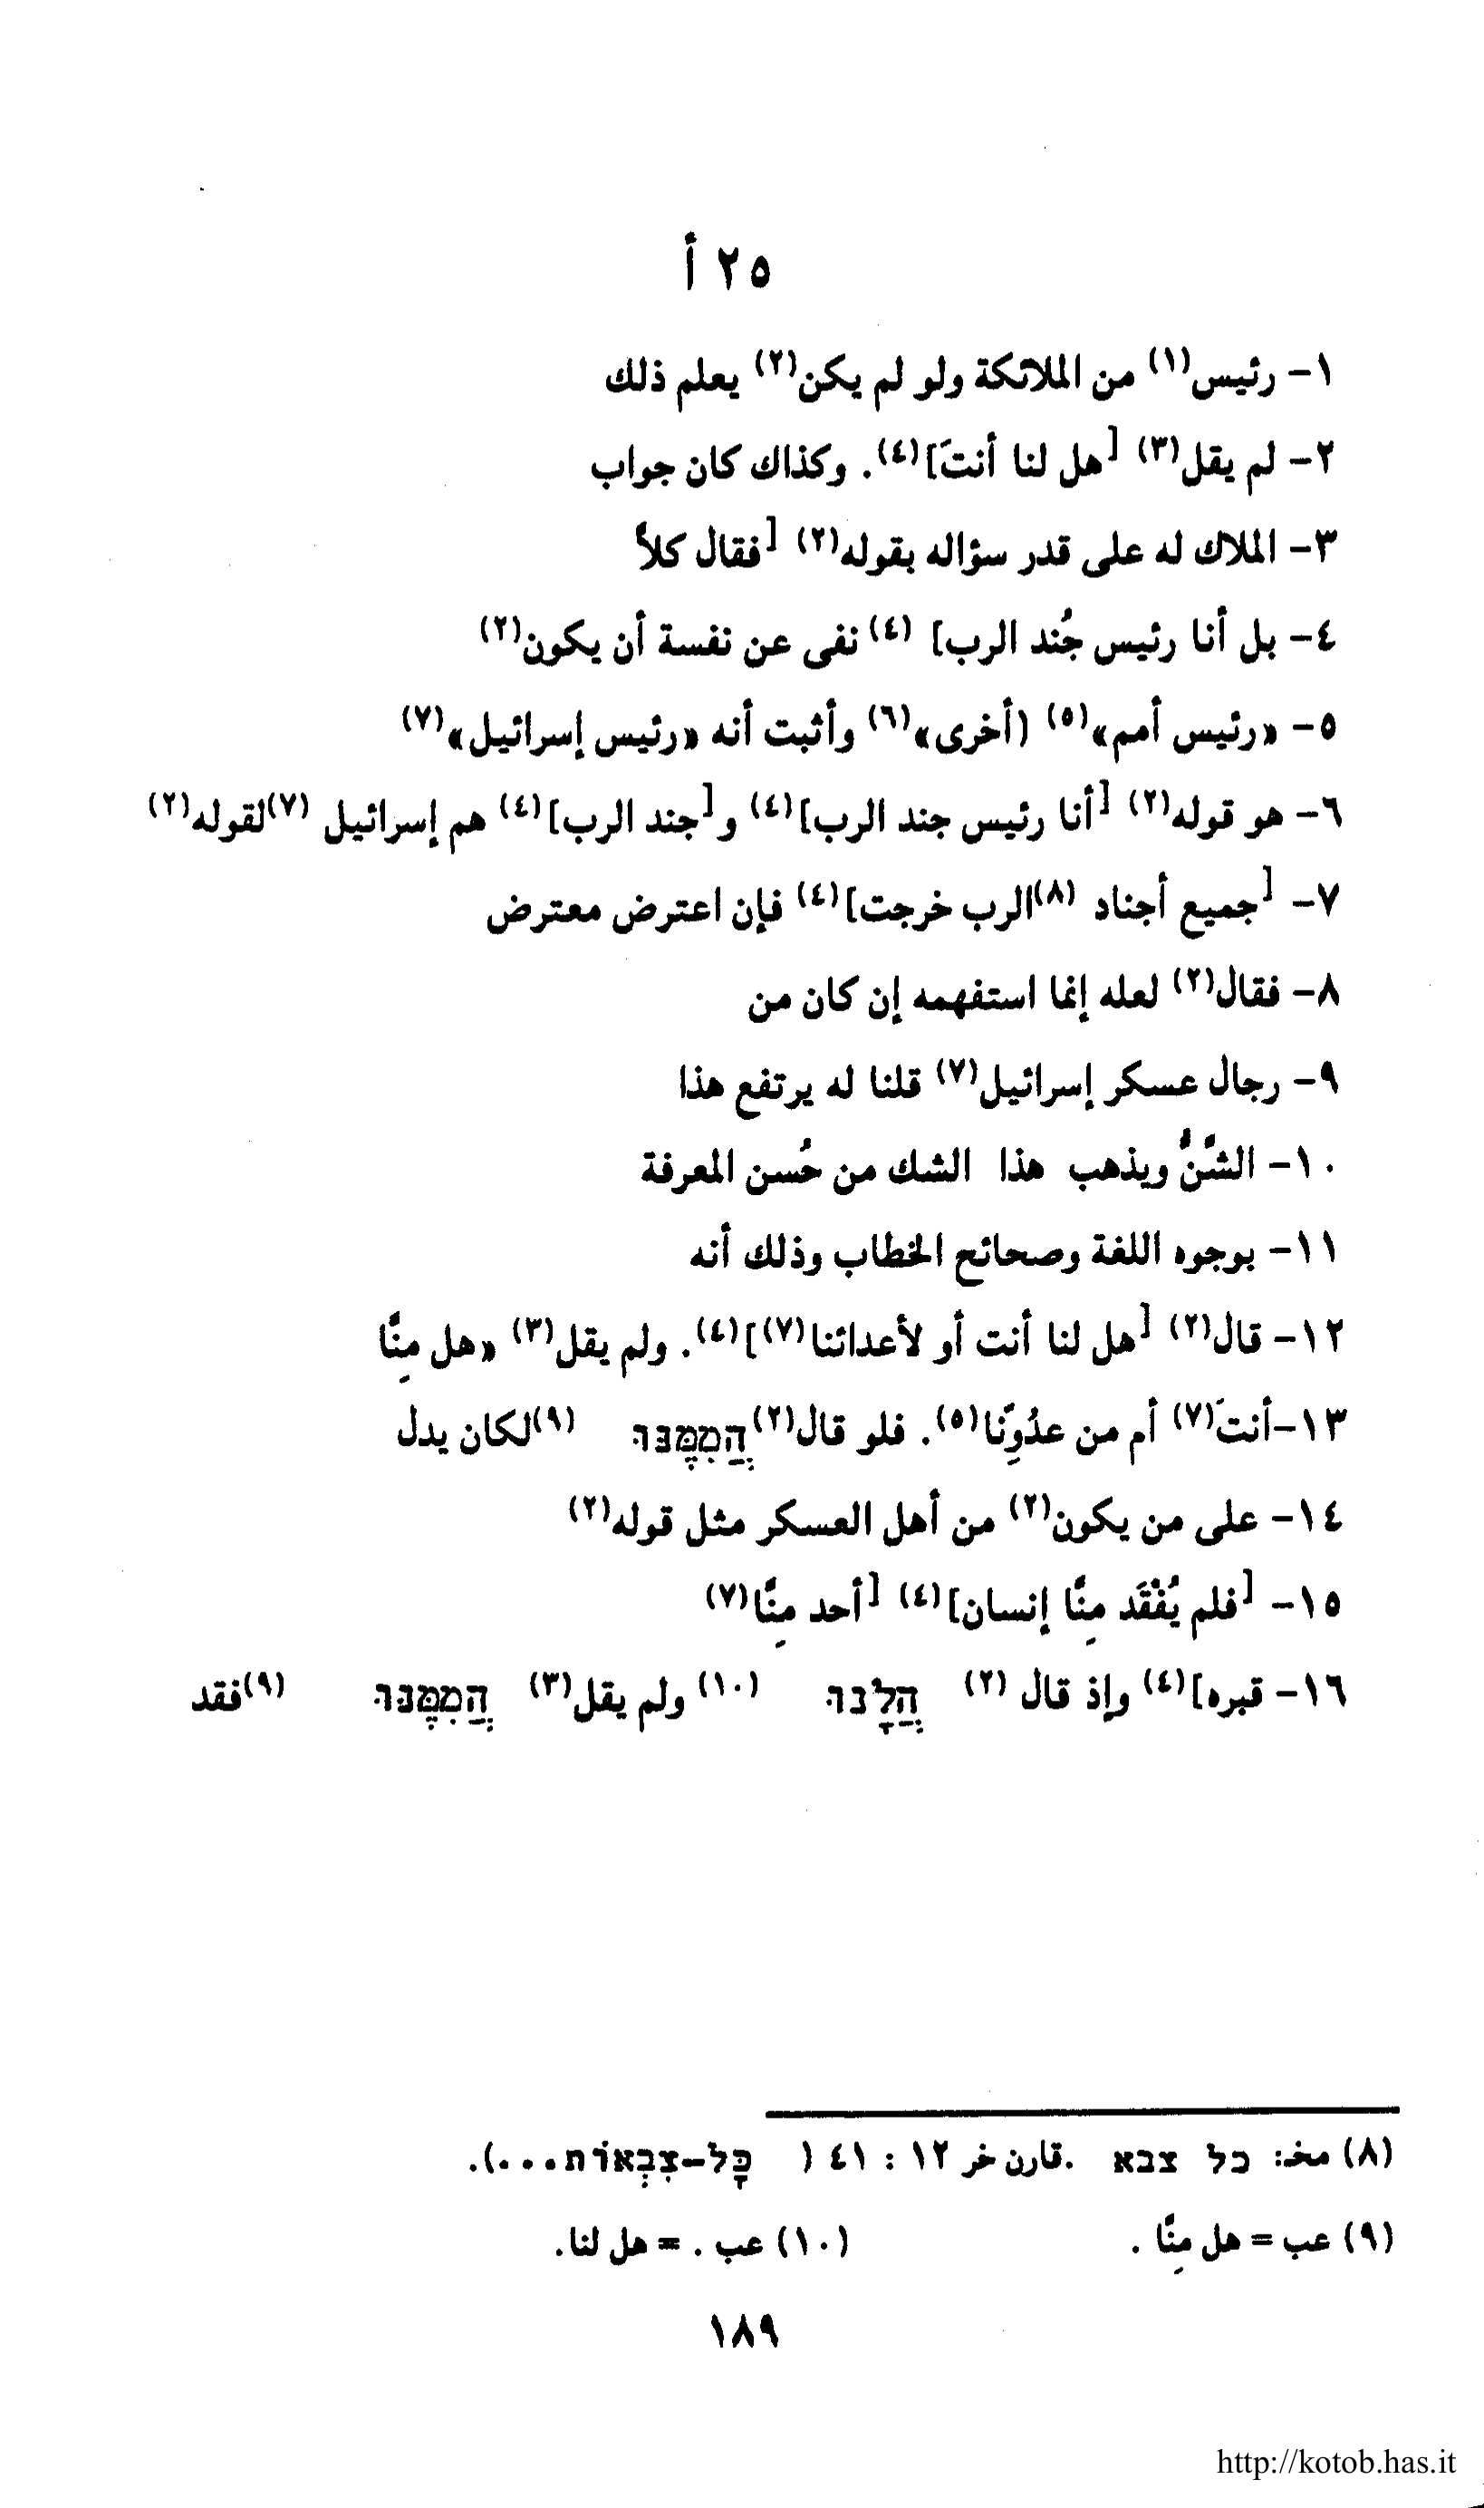 ٢٥ أ
١- رئيس(١) من الملائكة ولو لم يكن(٢) يعلم ذلك
٢- لم يقل(٣) [هل لنا أنتَ](٤). وكذاك كان جواب
٣- الملاك له على قدر سؤاله بقوله(٢) [فقال كلاَّ
٤- بل أنا رئيس جُند الرب] (٤) نفى عن نفسة أن يكون(٢)
٥- «رئيس أمم»(٥) (أخرى»(٦) وأثبت أنه «رئيس إسرائيل»(٧)
٦- هو قوله(٢) [أنا رئيس جند الرب](٤) و[جند الرب](٤) هم إسرائيل (٧)لقوله(٢)
٧- [جميع أجناد (٨)الرب خرجت](٤) فإن اعترض معترض
٨- فقال(٢) لعله إنما استفهمه إن كان من
٩- رجال عسكر إسرائيل(٧) قلنا له يرتفع هذا
١٠- ويذهب هذا الشك من حُسن المعرفة
١١- بوجوه اللغة وصحائح الخطاب وذلك أنه
١٢- قال(٢) [هل لنا أنت أو لأعدائنا(٧)](٤). ولم يقل(٣) «هل مِنَّا
١٣-أنتَ(٧) أم من عدُوِّنا(٥). فلو قال(٢) הֲמִמֶּנּוּ (٩)لكان يدل
١٤- على من يكون(٢) من أهل العسكر مثل قوله(٢)
١٥- [فلم يُفْقَد مِنَّا إنسان](٤) [أحد مِنَّا(٧)
١٦- قبره](٤) وإذ قال (٢) הֲלָנוּ (١٠) ولم يقل(٣) הֲמִמֶּנּוּ (٩)فقد
(٨) مخ: כל צבא .قارن خر ١٢ : ٤١ ( כָּל-צִבְאוֹת...).
(٩) عب = هل مِنَّا . (١٠) عب . = هل لنا.
١٨٩
http://kotob.has.it